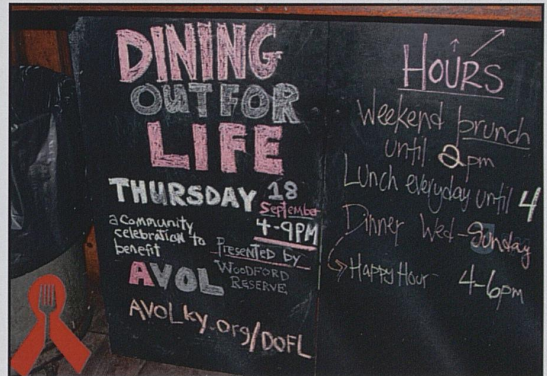 DINING
OUT FOR
LIFE
THURSDAY 18
September
4-9PM
a community
celebration to
benefit
AVOL
Presented by
WOODFORD
RESERVE
AVOLky.org/DOFL
HOURS
Weekend brunch
until 2pm
Lunch everyday until 4
Dinner Wed-Sunday
Happy Hour - 4-6pm